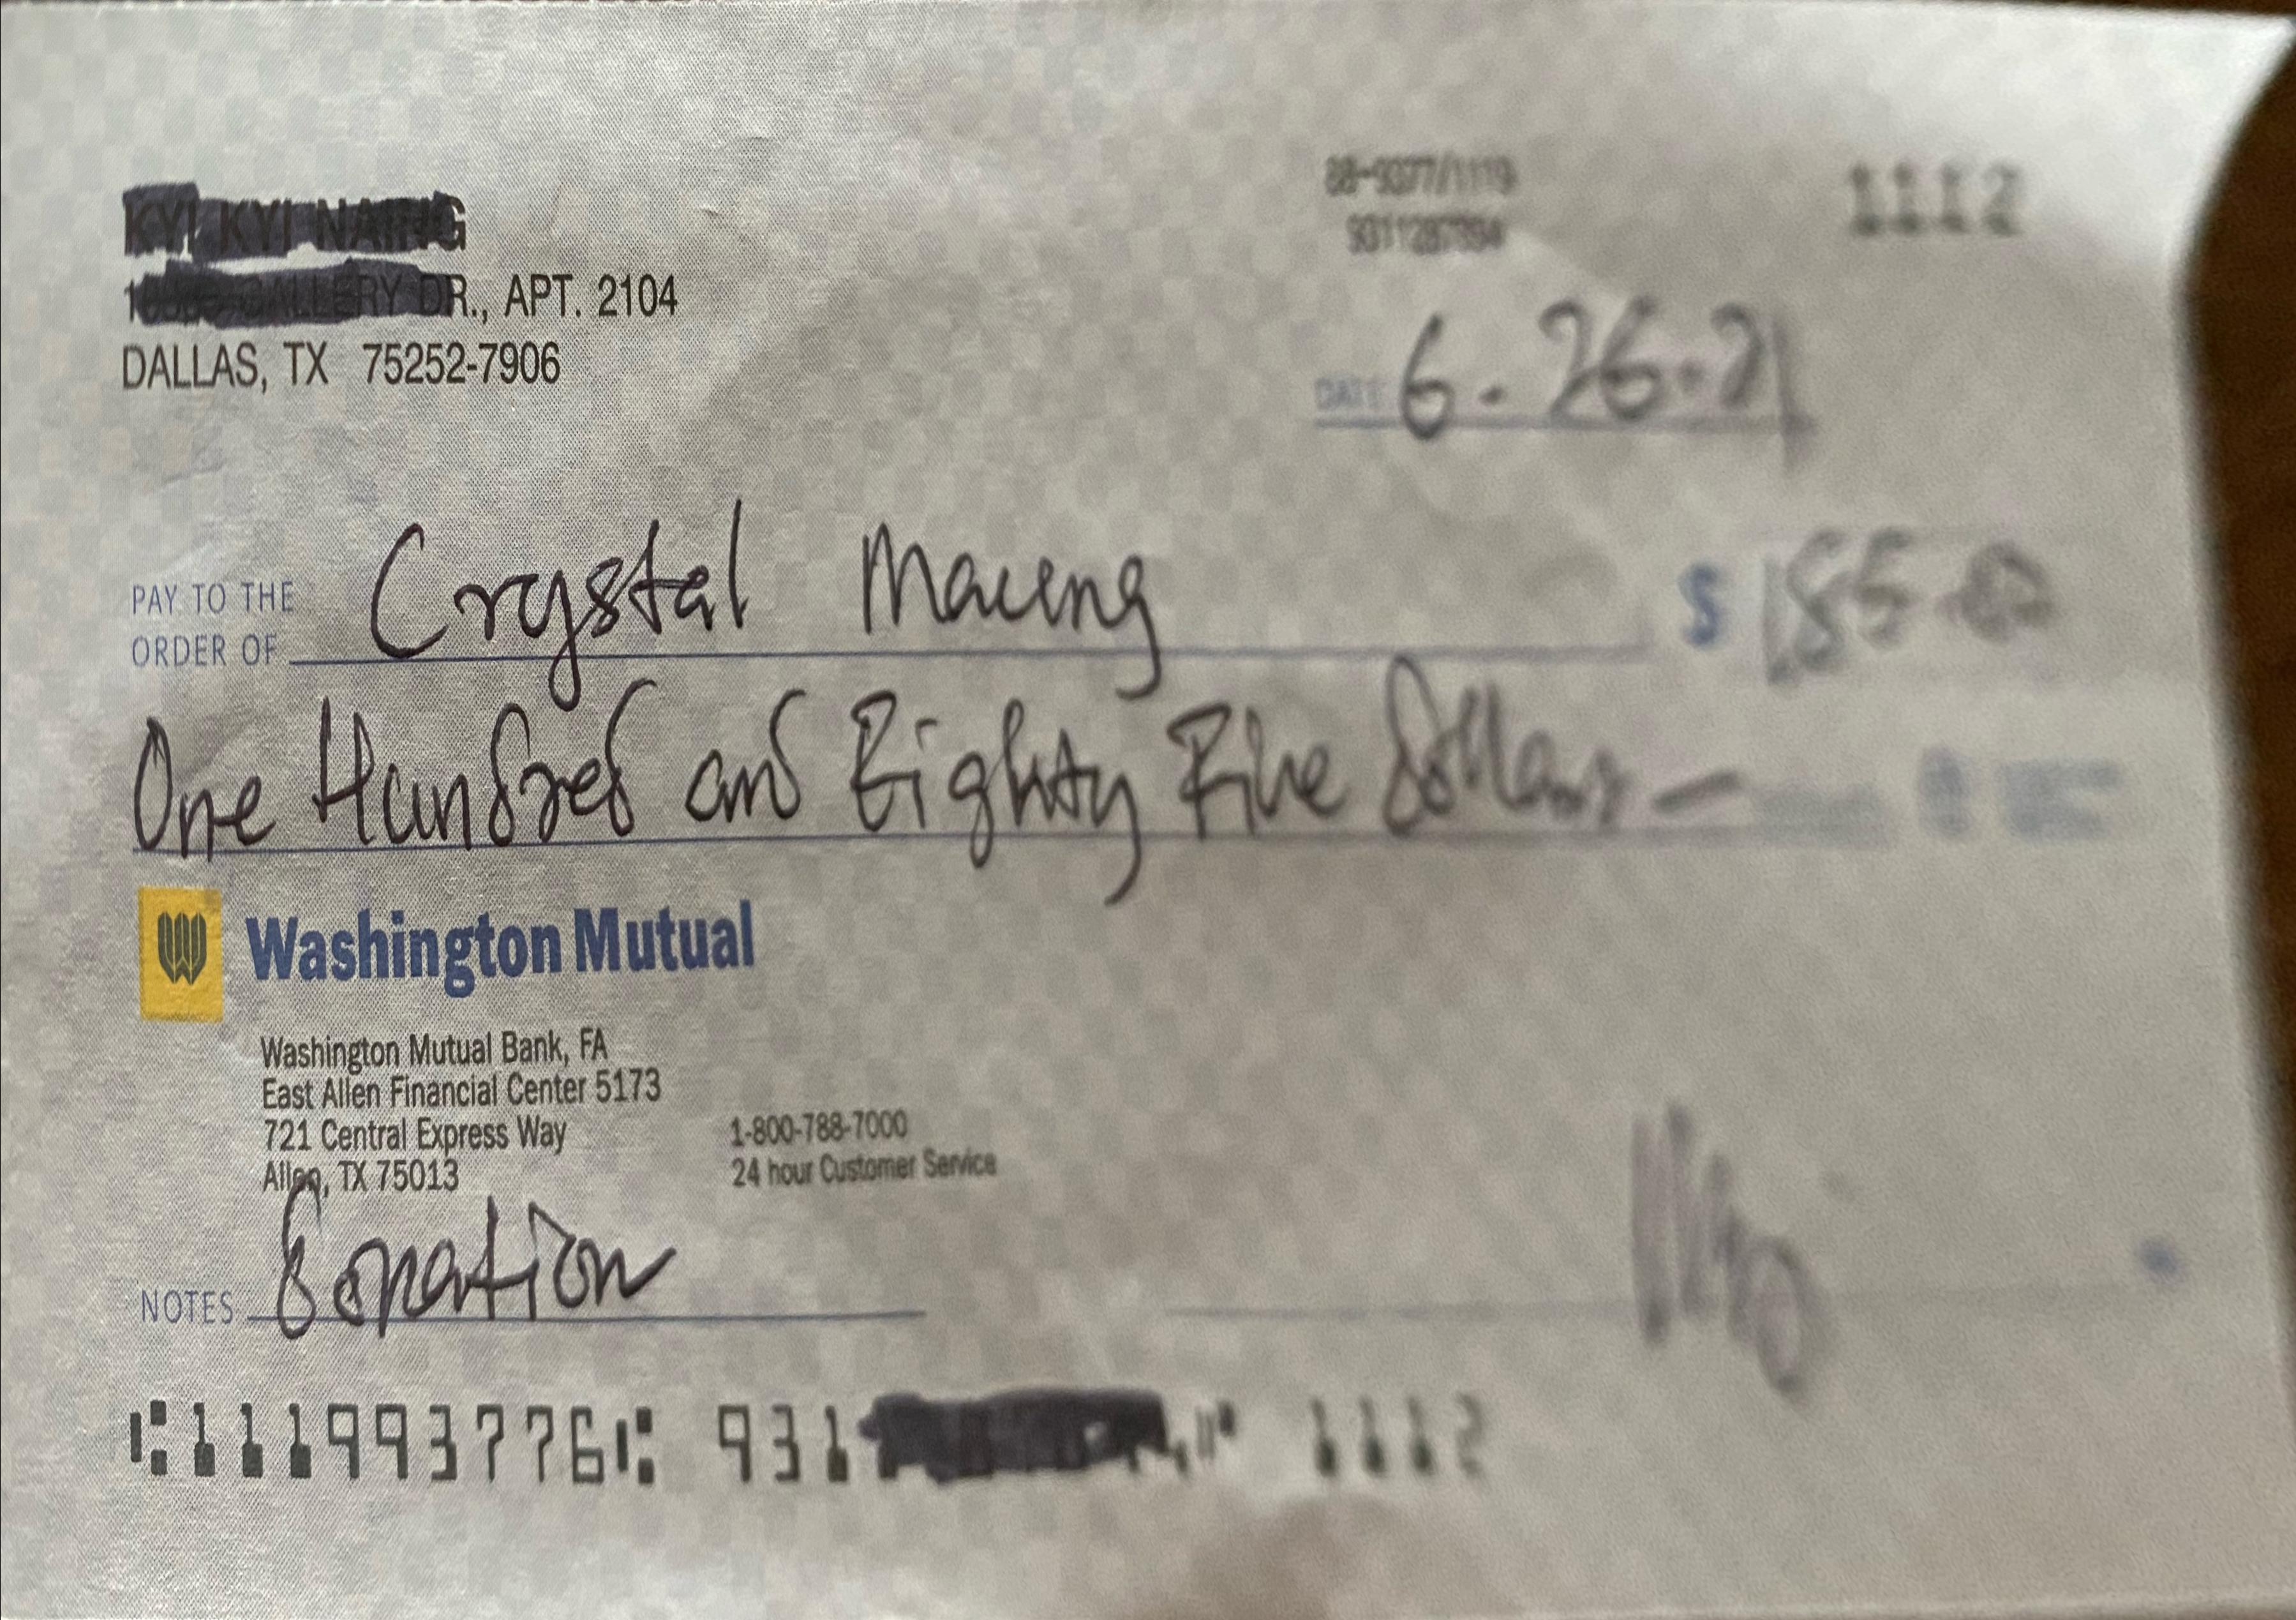 1112
DR., APT. 2104
DALLAS, TX 75252-7906
DATE 6.26.21
PAY TO THE
ORDER OF Crystal Maung $ 185.00
One Hundred and Eighty Five dollars —
Washington Mutual
Washington Mutual Bank, FA
East Allen Financial Center 5173
721 Central Express Way 1-800-788-7000
Allen, TX 75013 24 hour Customer Service
NOTES Donation
111993776 931 1112